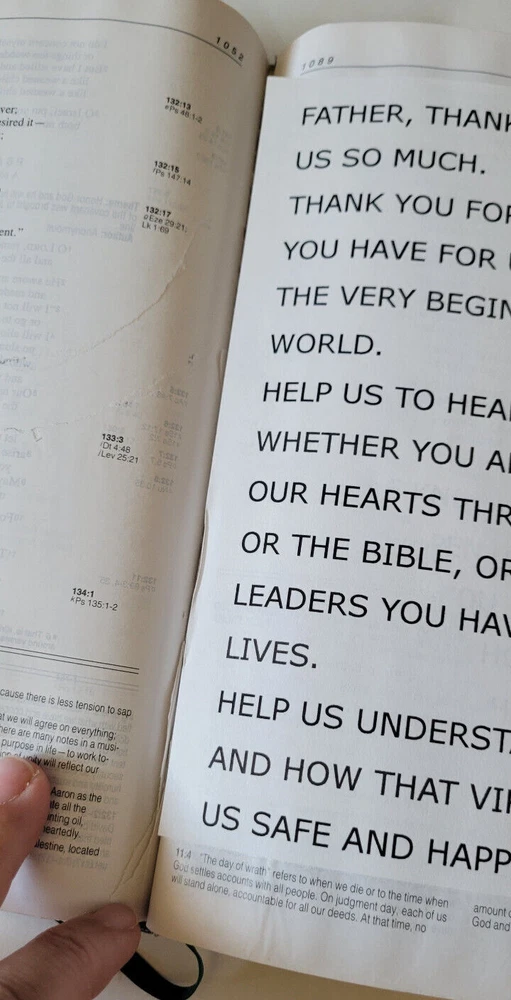 1052
132:13
Ps 48:1-2
132:15
Ps 147:14
132:17
Eze 29:21;
Lk 1:69
ver;
sired it—
ent."
133:3
Dt 4:48
Lev 25:21
134:1
Ps 135:1-2
cause there is less tension to sap
t we will agree on everything;
here are many notes in a musi-
purpose in life—to work to-
unity will reflect our
Aaron as the
all the
nting oil,
eartedly.
lestine, located
1089
FATHER, THANK
US SO MUCH.
THANK YOU FOR
YOU HAVE FOR U
THE VERY BEGIN
WORLD.
HELP US TO HEA
WHETHER YOU A
OUR HEARTS THR
OR THE BIBLE, OR
LEADERS YOU HAV
LIVES.
HELP US UNDERSTA
AND HOW THAT VI
US SAFE AND HAPP
11:4 "The day of wrath" refers to when we die or to the time when
God settles accounts with all people. On judgment day, each of us
will stand alone, accountable for all our deeds. At that time, no
amount o
God and